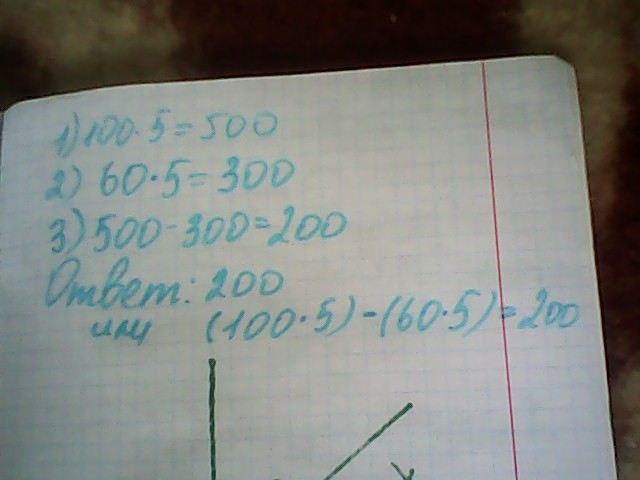 1) 100·5=500
2) 60·5=300
3) 500-300=200
Ответ: 200
или (100·5)-(60·5)=200